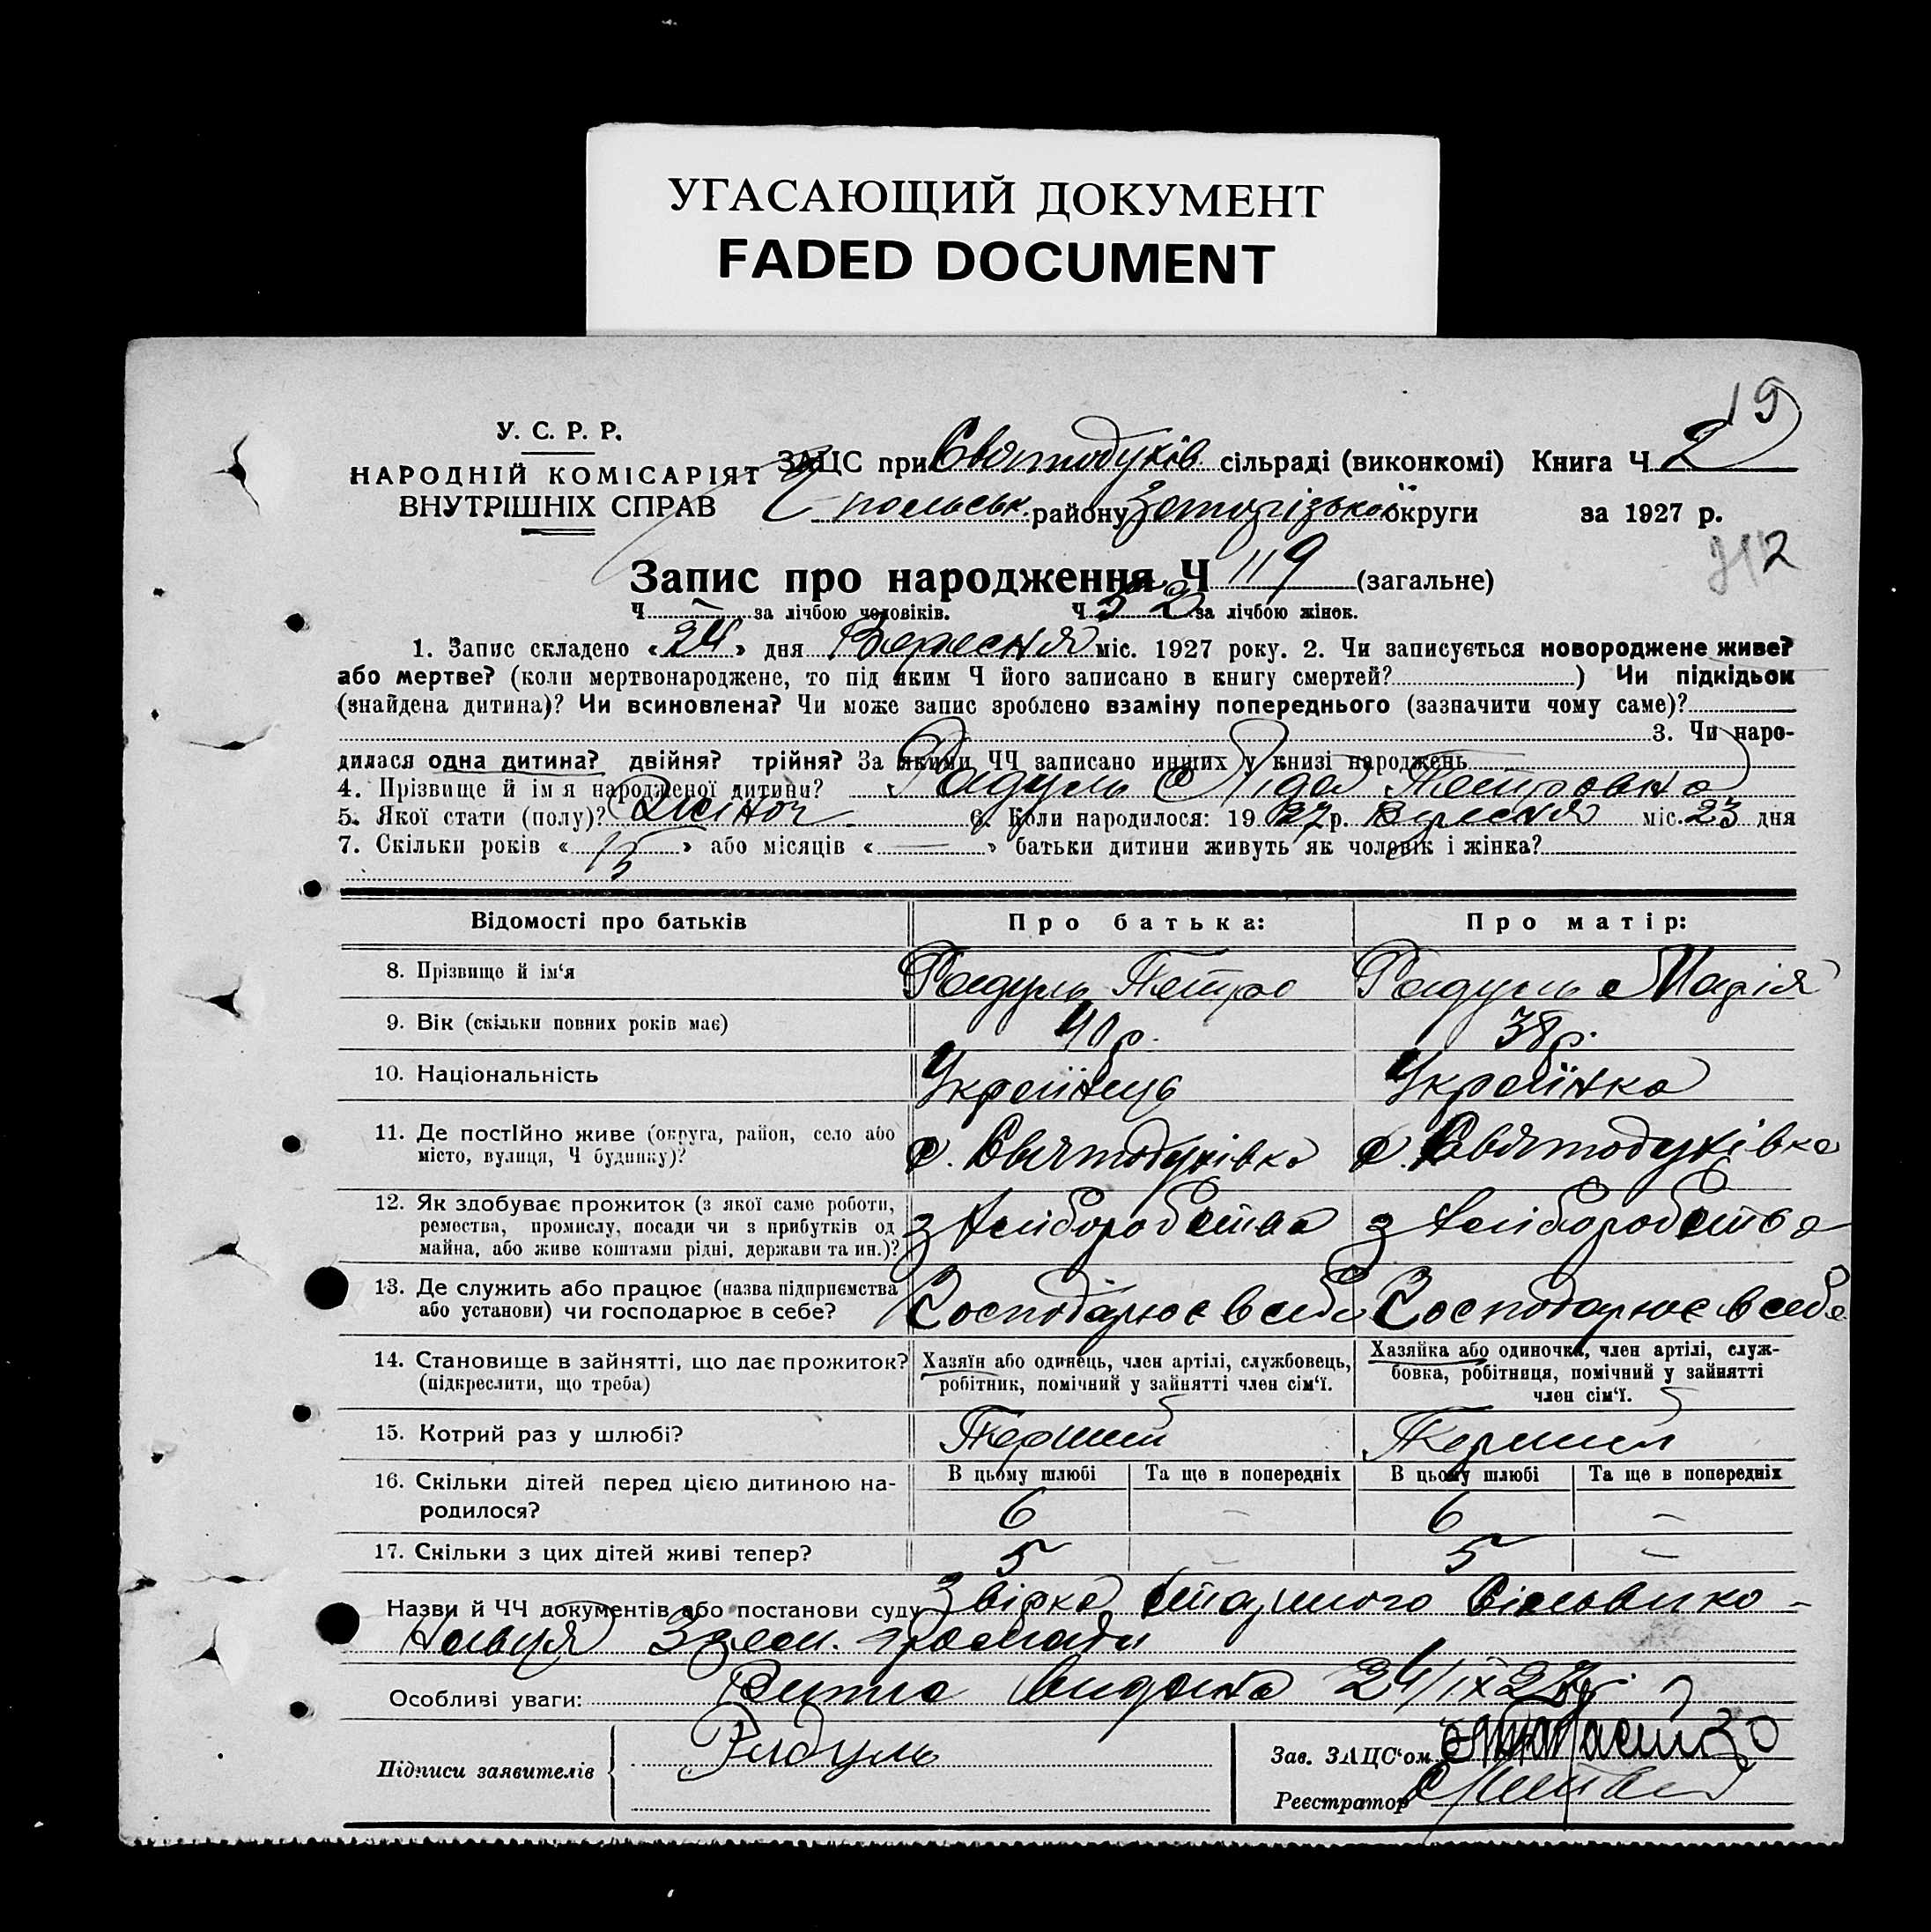 УГАСАЮЩИЙ ДОКУМЕНТ
FADED DOCUMENT
19
У. С. Р. Р.
НАРОДНІЙ КОМІСАРІЯТ
ВНУТРІШНІХ СПРАВ
ЗАЦС при Святодухів. сільраді (виконкомі) Книга Ч 2
польськ. району округи за 1927 р.
Запис про народження Ч 119 (загальне)
Ч — за лічбою чоловіків. Ч 52 за лічбою жінок.
1. Запис складено « 24 » дня Вересня міс. 1927 року. 2. Чи записується новороджене живе?
або мертве? (коли мертвонароджене, то під яким Ч його записано в книгу смертей? ) Чи підкідьок
(знайдена дитина)? Чи всиновлена? Чи може запис зроблено взаміну попереднього (зазначити чому саме)?
3. Чи наро-
дилася одна дитина? двійня? трійня? За якими ЧЧ записано инших у книзі народжень
4. Прізвище й ім я народженої дитини? Радуль Ліда Петровна
5. Якої стати (полу)? Жіноч 6. Коли народилося: 19 27 р. Вересня міс. 23 дня
7. Скільки років « 15 » або місяців « — » батьки дитини живуть як чоловік і жінка?
Відомості про батьків Про батька: Про матір:
8. Прізвище й ім'я Радуль Петро Радуль Марія
9. Вік (скільки повних років має) 40 р. 38 р.
10. Національність Українець Українка
11. Де постійно живе (округа, район, село або
місто, вулиця, Ч будинку)? с. Святодухівка с. Святодухівка
12. Як здобуває прожиток (з якої саме роботи,
ремества, промислу, посади чи з прибутків од
майна, або живе коштами рідні, держави та ин.)? з хліборобства з хліборобства
13. Де служить або працює (назва підприємства
або установи) чи господарює в себе? Господарює в себе Господарює в себе
14. Становище в зайнятті, що дає прожиток?
(підкреслити, що треба)
Хазяїн або одинець, член артілі, службовець,
робітник, помічний у зайнятті член сім'ї.
Хазяйка або одиночка, член артілі, служ-
бовка, робітниця, помічний у зайнятті
член сім'ї.
15. Котрий раз у шлюбі? Перший Перший
16. Скільки дітей перед цією дитиною на-
родилося?
В цьому шлюбі Та ще в попередніх В цьому шлюбі Та ще в попередніх
6 — 6 —
17. Скільки з цих дітей живі тепер? 5 — 5 —
Назви й ЧЧ документів або постанови суду
громади
Особливі уваги: видана 24/IX 27р.
Підписи заявителів Радуль
Зав. ЗАЦС'ом
Реєстратор